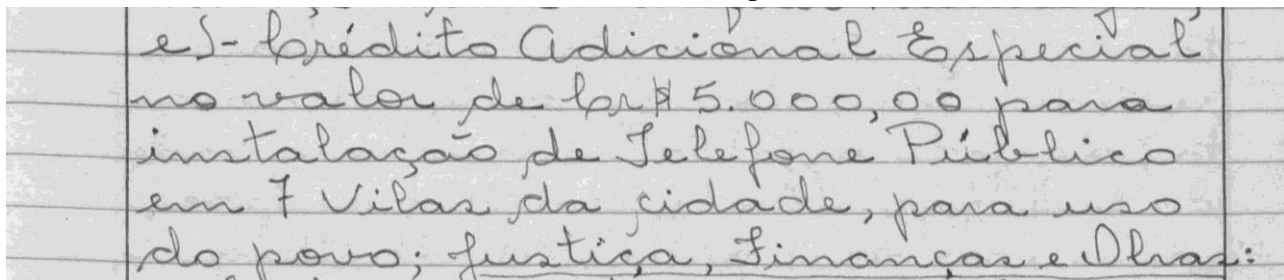 e)- Crédito Adicional Especial
no valor de Cr$ 5.000,00 para
instalação de Telefone Público
em 7 Vilas da cidade, para uso
do povo; Justiça, Finanças e Obras: